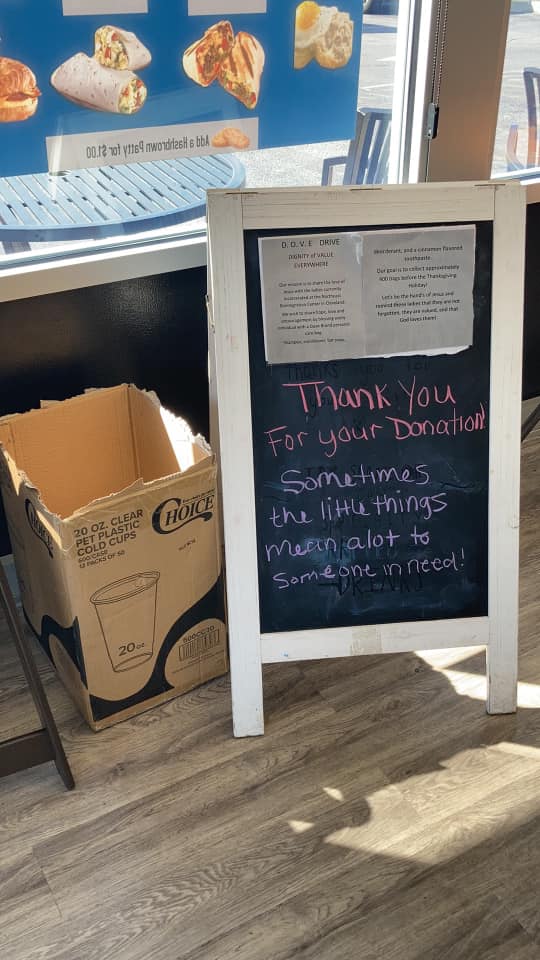 Add a Hashbrown Patty for $1.00
D. O. V. E DRIVE
DIGNITY of VALUE
EVERYWHERE
Our mission is to share the love of
Jesus with the ladies currently
incarcerated at the Northeast
Reintegration Center in Cleveland.
We wish to share hope, love and
encouragement by blessing every
individual with a Dove Brand personal
care bag.
Shampoo, conditioner, bar soap,
deodorant, and a cinnamon flavored
toothpaste.
Our goal is to collect approximately
400 bags before the Thanksgiving
Holiday!
Let's be the hands of Jesus and
remind these ladies that they are not
forgotten, they are valued, and that
God loves them!
Thank You
For your Donation!
Sometimes
the little things
mean alot to
Someone in need!
CHOICE
20 OZ. CLEAR
PET PLASTIC
COLD CUPS
600/CASE
12 PACKS OF 50
CHOICE
20 oz
500CC20